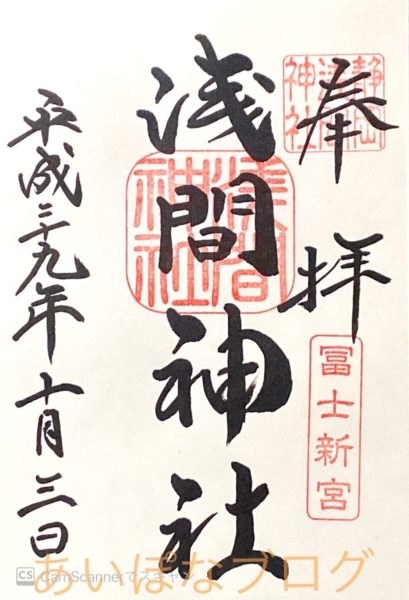 奉拝
静岡
浅間
神社
冨士新宮
浅間神社
淺間
神社
平成二十九年十月三日
CS CamScannerでスキャン
あいぽなブログ